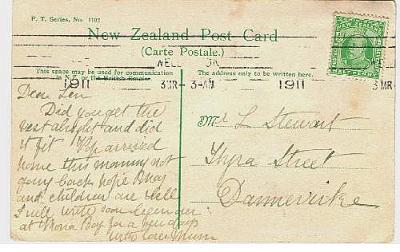 P. T. Series, No. 1102
New Zealand Post Card
(Carte Postale.)
This space may be used for communication
The address only to be written here.
1911
3 MR
3-AM
1911
3 MR
Dear Len
Did you get the
vest alright and did
it fit
home this morning not
going back hope
and children are well
I will write soon
at Bay for a few days
with love Mum
Mr L Stewart
Thyra Street
Dannevirke